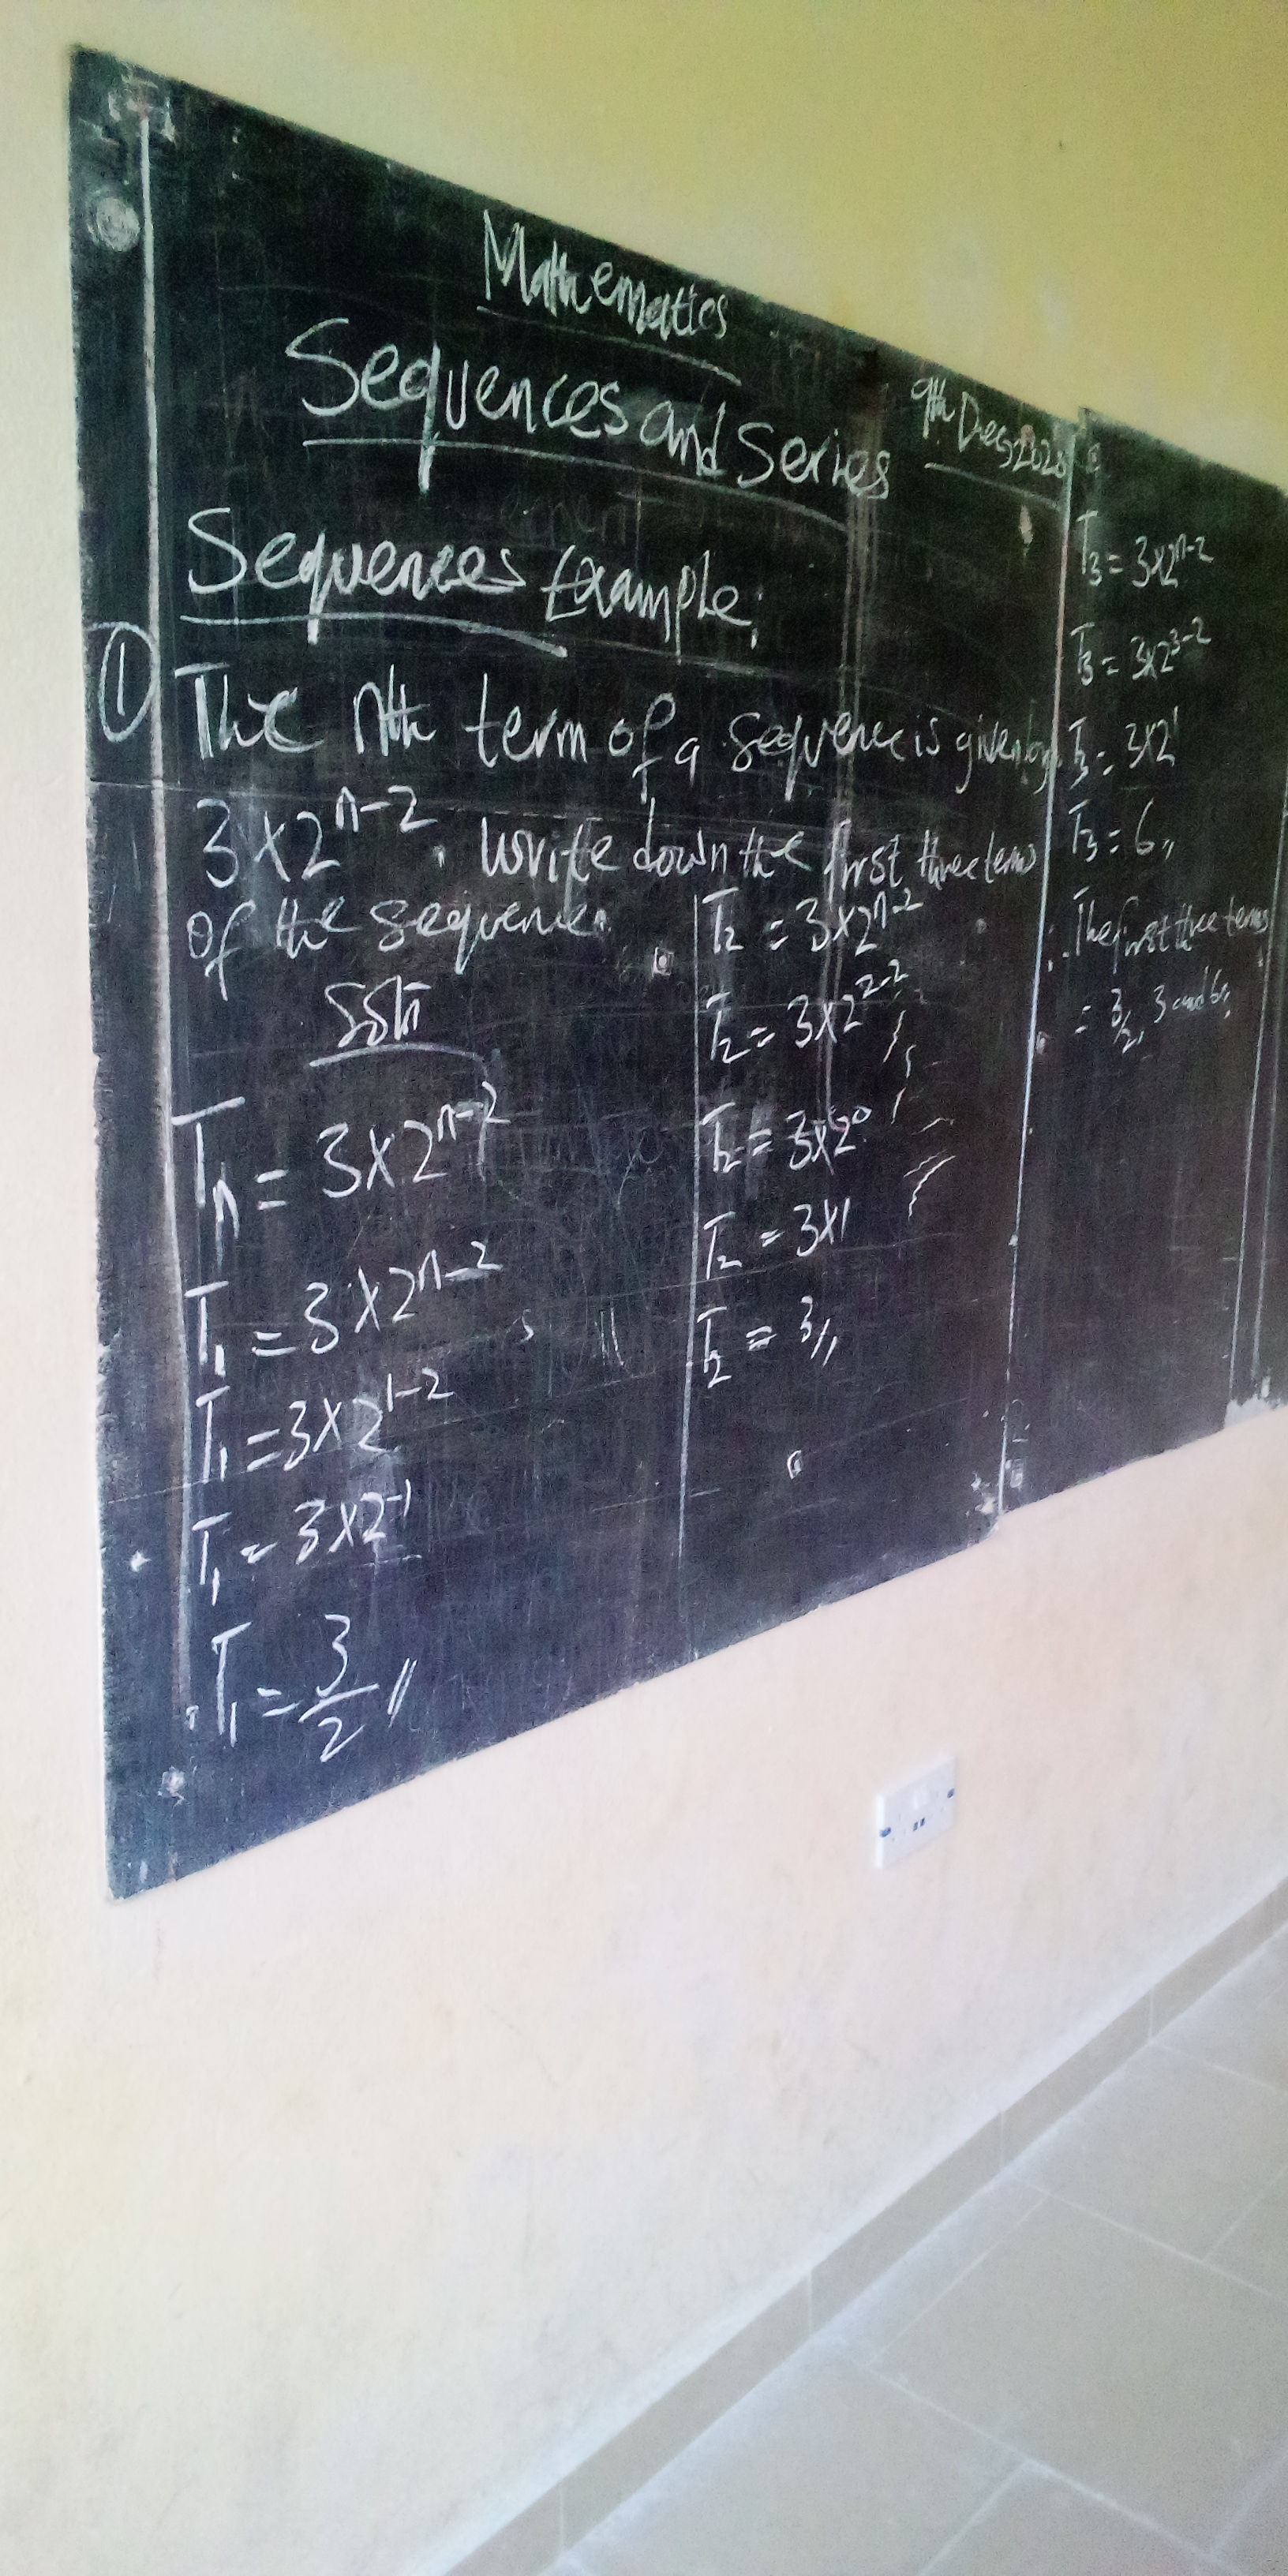 Mathematics
Sequences and Series
9th Dec, 2020
Sequences Example:
① The nth term of a sequence is given by
3×2ⁿ⁻². write down the first three terms
of the sequence.
Soln
Tₙ = 3×2ⁿ⁻²
T₁ = 3×2ⁿ⁻²
T₁ = 3×2¹⁻²
T₁ = 3×2⁻¹
T₁ = 3/2//
T₂ = 3×2ⁿ⁻²
T₂ = 3×2²⁻²
T₂ = 3×2⁰
T₂ = 3×1
T₂ = 3//
T₃ = 3×2ⁿ⁻²
T₃ = 3×2³⁻²
T₃ = 3×2¹
T₃ = 6//
∴ The first three terms
= 3/2, 3 and 6//